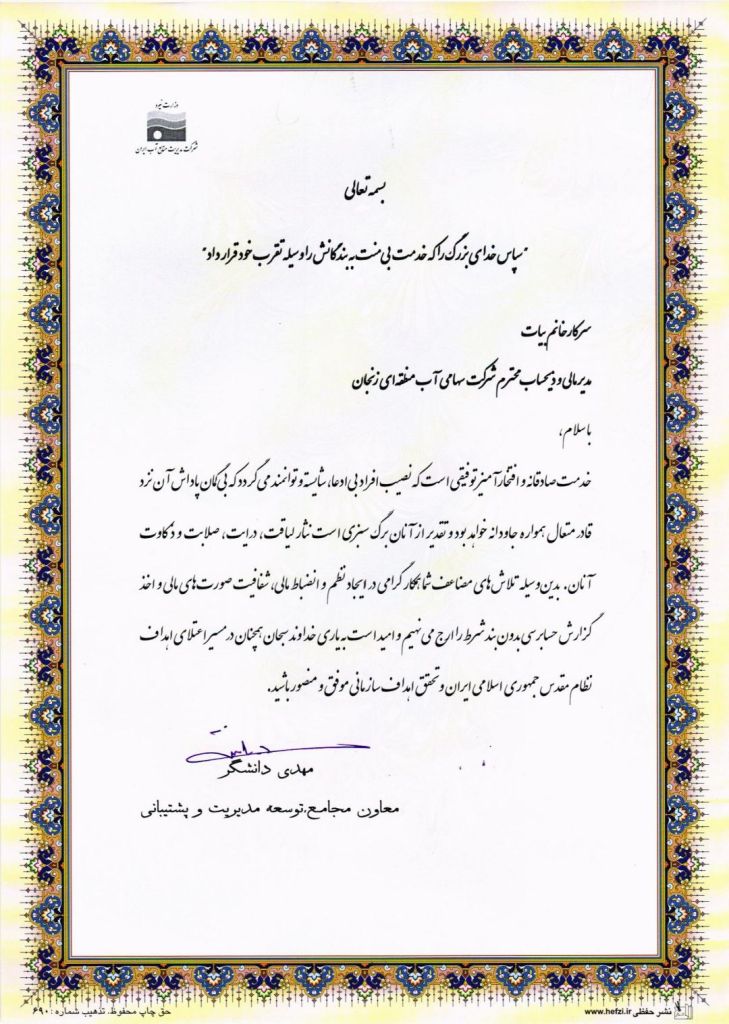 وزارت نیرو
شرکت مدیریت منابع آب ایران
بسمه تعالی
"سپاس خدای بزرگ را که خدمت بی منت به بندگانش را وسیله تقرب خود قرار داد"
سرکار خانم بیات
مدیر مالی و ذیحساب محترم شرکت سهامی آب منطقه ای زنجان
با سلام،
خدمت صادقانه و افتخارآمیز توفیقی است که نصیب افراد بی ادعا، شایسته و توانمند می گردد که بی گمان پاداش آن نزد
قادر متعال همواره جاودانه خواهد بود و تقدیر از آنان برگ سبزی است نثار لیاقت، درایت، صلابت و ذکاوت
آنان. بدین وسیله تلاش های مضاعف شما همکار گرامی در ایجاد نظم و انضباط مالی، شفافیت صورت های مالی و اخذ
گزارش حسابرسی بدون بند شرط را ارج می نهیم و امید است به یاری خداوند سبحان همچنان در مسیر اعتلای اهداف
نظام مقدس جمهوری اسلامی ایران و تحقق اهداف سازمانی موفق و منصور باشید.
مهدی دانشگر
معاون مجامع،توسعه مدیریت و پشتیبانی
نشر حفظی www.hefzi.ir
حق چاپ محفوظ. تذهیب شماره: ۶۹۰